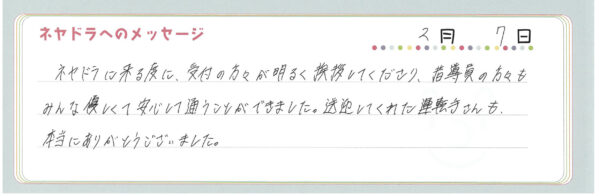 ネヤドラへのメッセージ 2月 7日
ネヤドラに来る度に、受付の方々が明るく挨拶してくださり、指導員の方々も
みんな優しくて安心して通うことができました。送迎してくれた運転手さんも、
本当にありがとうございました。